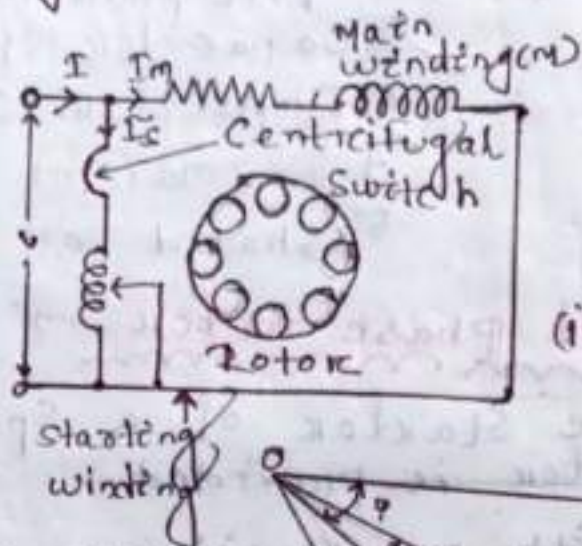 Main
winding(M)
I
Im
Is
Centricifugal
Switch
v
Rotor
(i)
starting
winding
O
φ